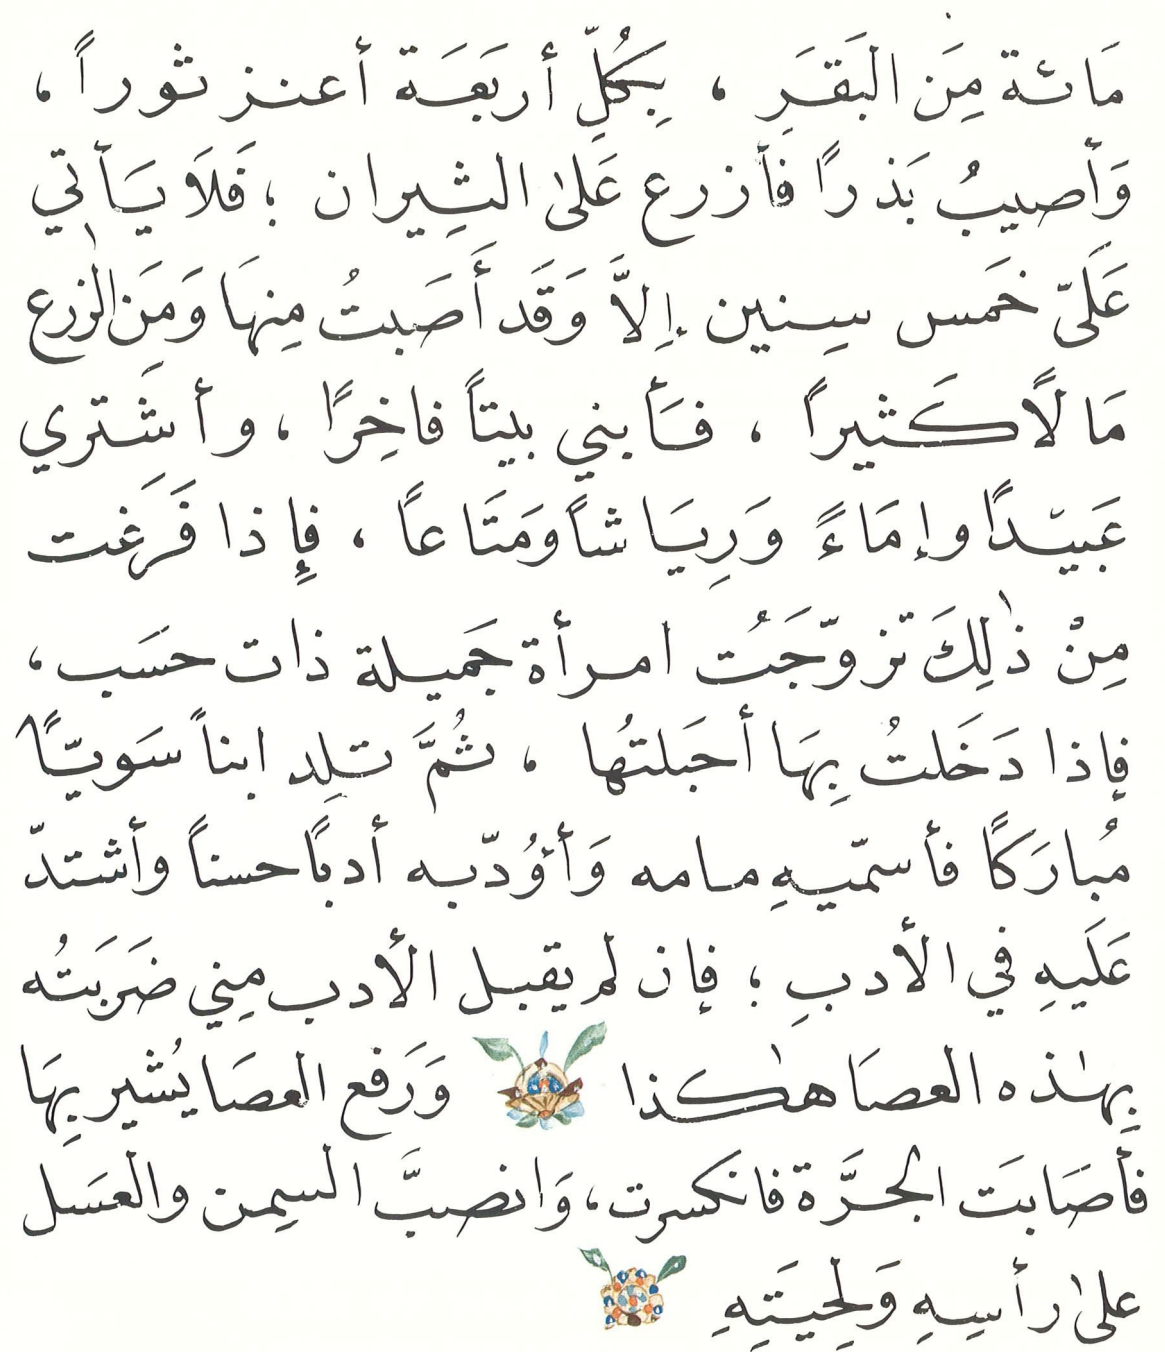 مَائة مِنَ البَقَرِ ، بِكُلِّ أربَعَة أعنز ثوراً ،
وَأصيبُ بَذرًا فأزرع عَلىٰ الثِيران ؛ فَلاَ يَأتي
عَلَىّ خَمس سِنين إلاَّ وَقَد أَصَبتُ مِنهَا وَمَن الزرع
مَالًا كَثيراً ، فَأبني بيتاً فاخِرًا ، وأشتَري
عَبيّداً وإمَاءً وَرِيَاشاً وَمَتَاعاً ، فإِذا فَرَغت
مِنْ ذٰلِكَ تزوّجَتُ امرأة جَميلة ذات حسَب ،
فإذا دَخَلتُ بِهَا أحبَلتُها ، ثُمَّ تلِد ابناً سَويّاً
مُبارَكًا فأسمّيهِ مامه وَأؤُدّبه أدبًا حسناً وأشتدّ
عَلَيهِ في الأدبِ ؛ فإن لم يقبل الأدب مِني ضَرَبَتُه
بِهٰذه العصَا هٰكذا وَرَفع العصَا يُشير بِهَا
فأصَابَت الجَرَّة فانكسرت ، وَانصبَّ السِمن والعسَل
علىٰ رأسِهِ وَلِحيَتِهِ